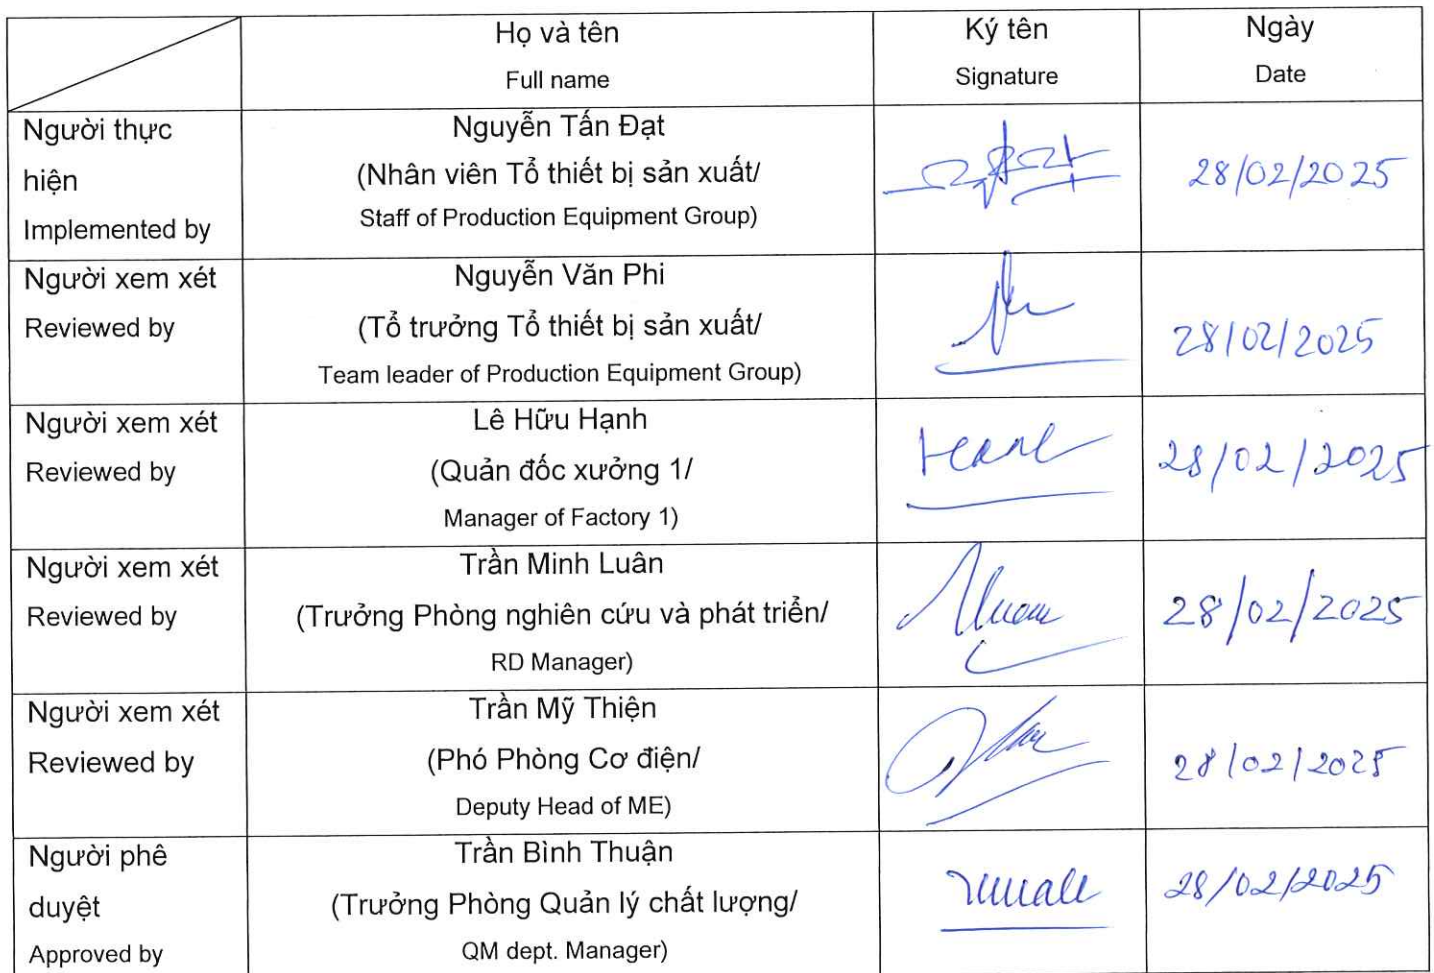 Họ và tên
Full name
Ký tên
Signature
Ngày
Date
Người thực
hiện
Implemented by
Nguyễn Tấn Đạt
(Nhân viên Tổ thiết bị sản xuất/
Staff of Production Equipment Group)
28/02/2025
Người xem xét
Reviewed by
Nguyễn Văn Phi
(Tổ trưởng Tổ thiết bị sản xuất/
Team leader of Production Equipment Group)
28/02/2025
Người xem xét
Reviewed by
Lê Hữu Hạnh
(Quản đốc xưởng 1/
Manager of Factory 1)
28/02/2025
Người xem xét
Reviewed by
Trần Minh Luân
(Trưởng Phòng nghiên cứu và phát triển/
RD Manager)
28/02/2025
Người xem xét
Reviewed by
Trần Mỹ Thiện
(Phó Phòng Cơ điện/
Deputy Head of ME)
28/02/2025
Người phê
duyệt
Approved by
Trần Bình Thuận
(Trưởng Phòng Quản lý chất lượng/
QM dept. Manager)
28/02/2025